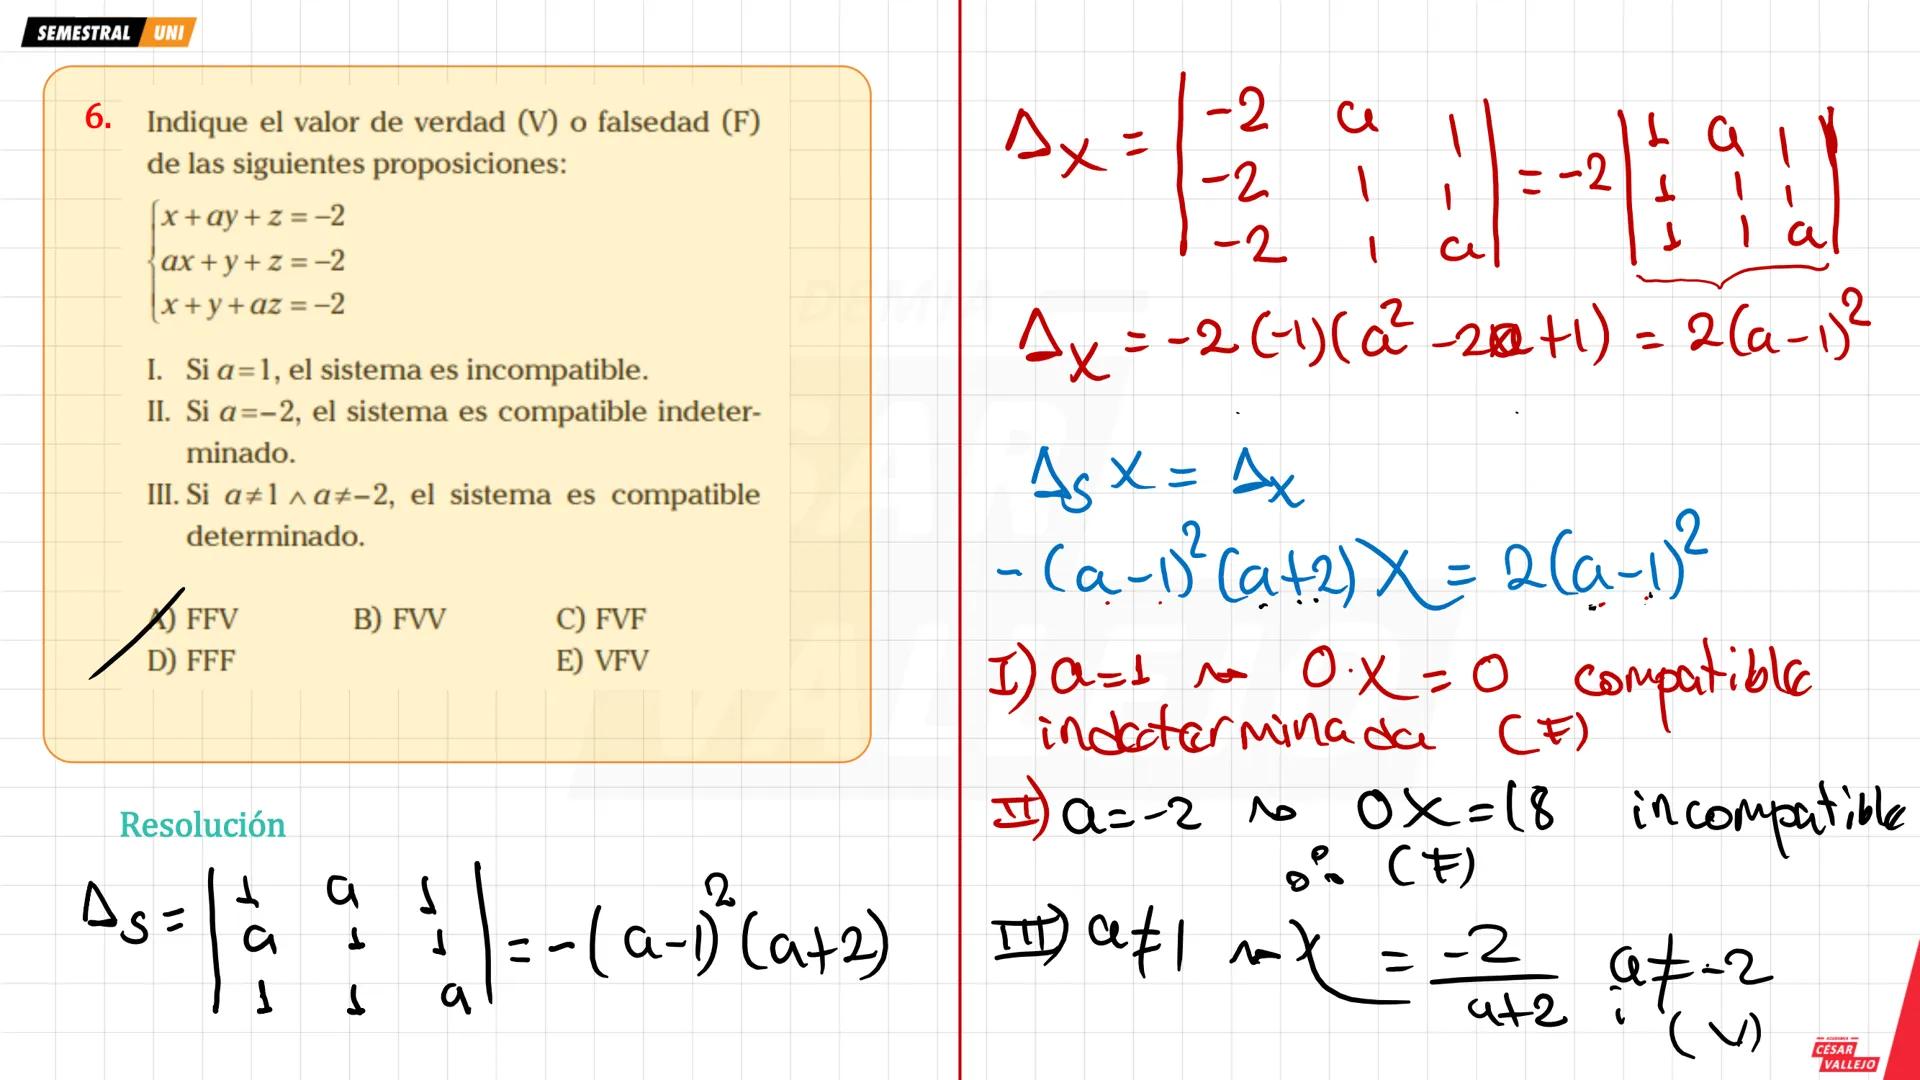 SEMESTRAL UNI
6. Indique el valor de verdad (V) o falsedad (F)
de las siguientes proposiciones:
x + ay + z = –2
ax + y + z = –2
x + y + az = –2
I. Si a=1, el sistema es incompatible.
II. Si a=–2, el sistema es compatible indeter-
minado.
III. Si a≠1 ∧ a≠–2, el sistema es compatible
determinado.
A) FFV B) FVV C) FVF
D) FFF E) VFV
Resolución
Δs = | 1 a 1 | = -(a-1)²(a+2)
| a 1 1 |
| 1 1 a |
Δx = | -2 a 1 | = -2 | 1 a 1 |
| -2 1 1 | | 1 1 1 |
| -2 1 a | | 1 1 a |
Δx = -2(-1)(a² -2a+1) = 2(a-1)²
Δs x = Δx
-(a-1)²(a+2)x = 2(a-1)²
I) a=1 → 0·x = 0 compatible
indeterminada (F)
II) a=-2 → 0x = 18 incompatible
∴ (F)
III) a≠1 → x = -2/(a+2) ; a≠-2
(V)
ACADEMIA
CÉSAR
VALLEJO